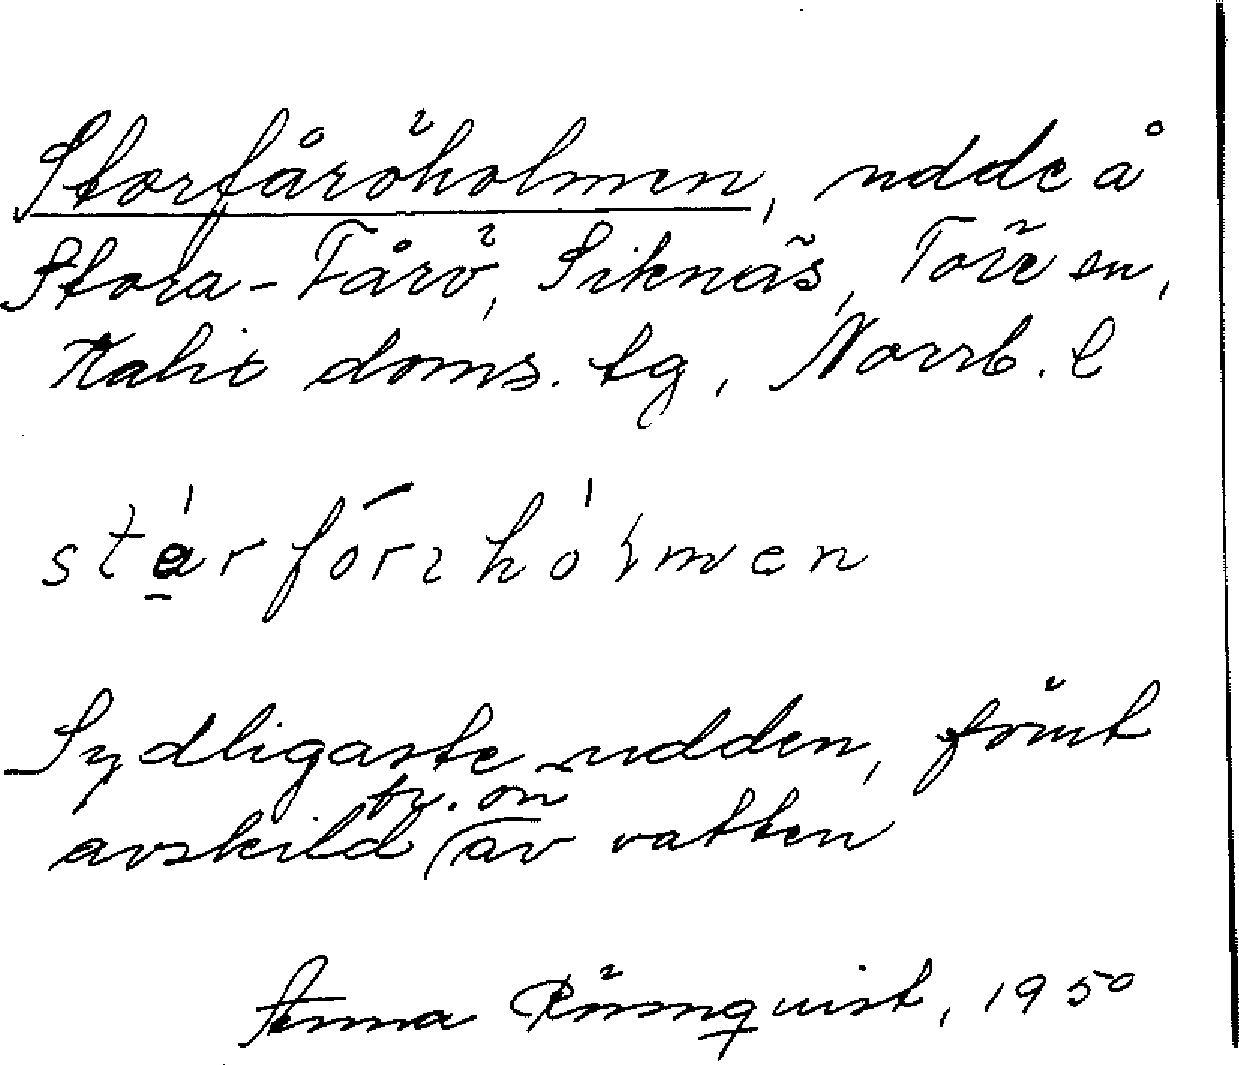 Storfåröholmen, udde å
Stora-Fårö, Siknäs, Töre sn,
Kalix doms. tg, Norrb. l
Sydligaste udden, förut
avskild fr. ön av vatten
Anna Rönnquist, 1950